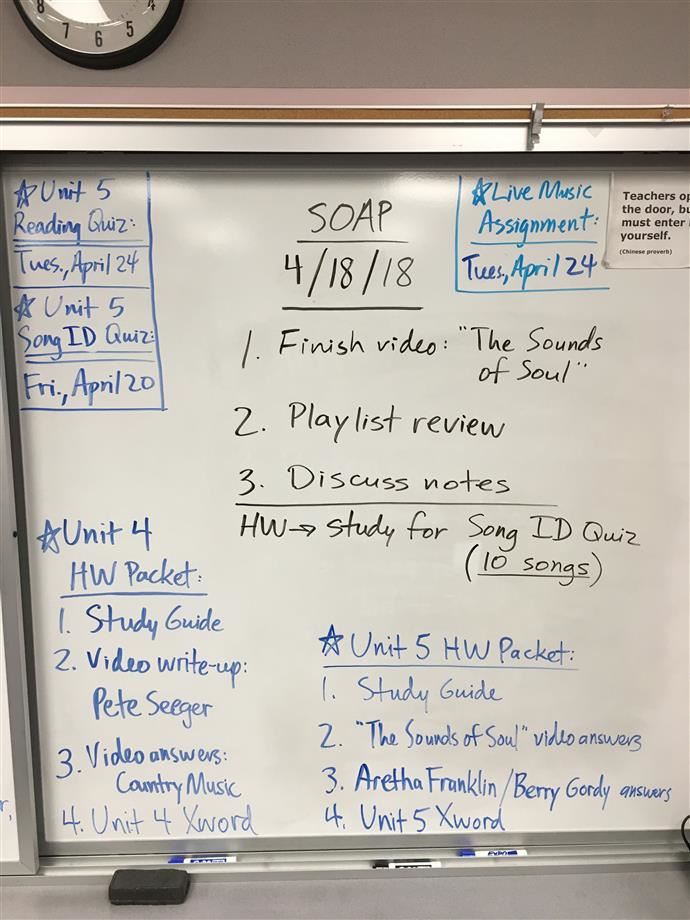 8
7
6
5
4
☆Unit 5
Reading Quiz:
Tues., April 24
☆ Unit 5
Song ID Quiz:
Fri., April 20
SOAP
4/18/18
☆Live Music
Assignment:
Tues., April 24
Teachers op
the door, bu
must enter
yourself.
(Chinese proverb)
1. Finish video: "The Sounds
of Soul"
2. Playlist review
3. Discuss notes
HW→ study for Song ID Quiz
(10 songs)
☆Unit 4
HW Packet:
1. Study Guide
2. Video write-up:
Pete Seeger
3. Video answers:
Country Music
4. Unit 4 Xword
☆ Unit 5 HW Packet:
1. Study Guide
2. "The Sounds of Soul" video answers
3. Aretha Franklin/Berry Gordy answers
4. Unit 5 Xword
EXPO